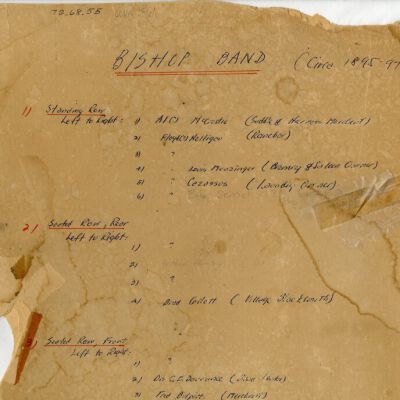 72.68.55
BISHOP BAND (Circa 1895-97
1) Standing Row
Left to Right: 1) McCredie (Saddle & Harness Merchant)
2) Floyd McHettigan (Rancher)
3) "
4) Louis Menzinger (Brewery & Saloon Owner)
5) Cazassus (Laundry Owner)
6) "
2) Seated Row, Rear
Left to Right:
1) "
2)
3) "
4) Brad Collett (Village Blacksmith)
3) Seated Row, Front
Left to Right:
1) "
2) Dr. G.E.
3) Fred (Merchant)